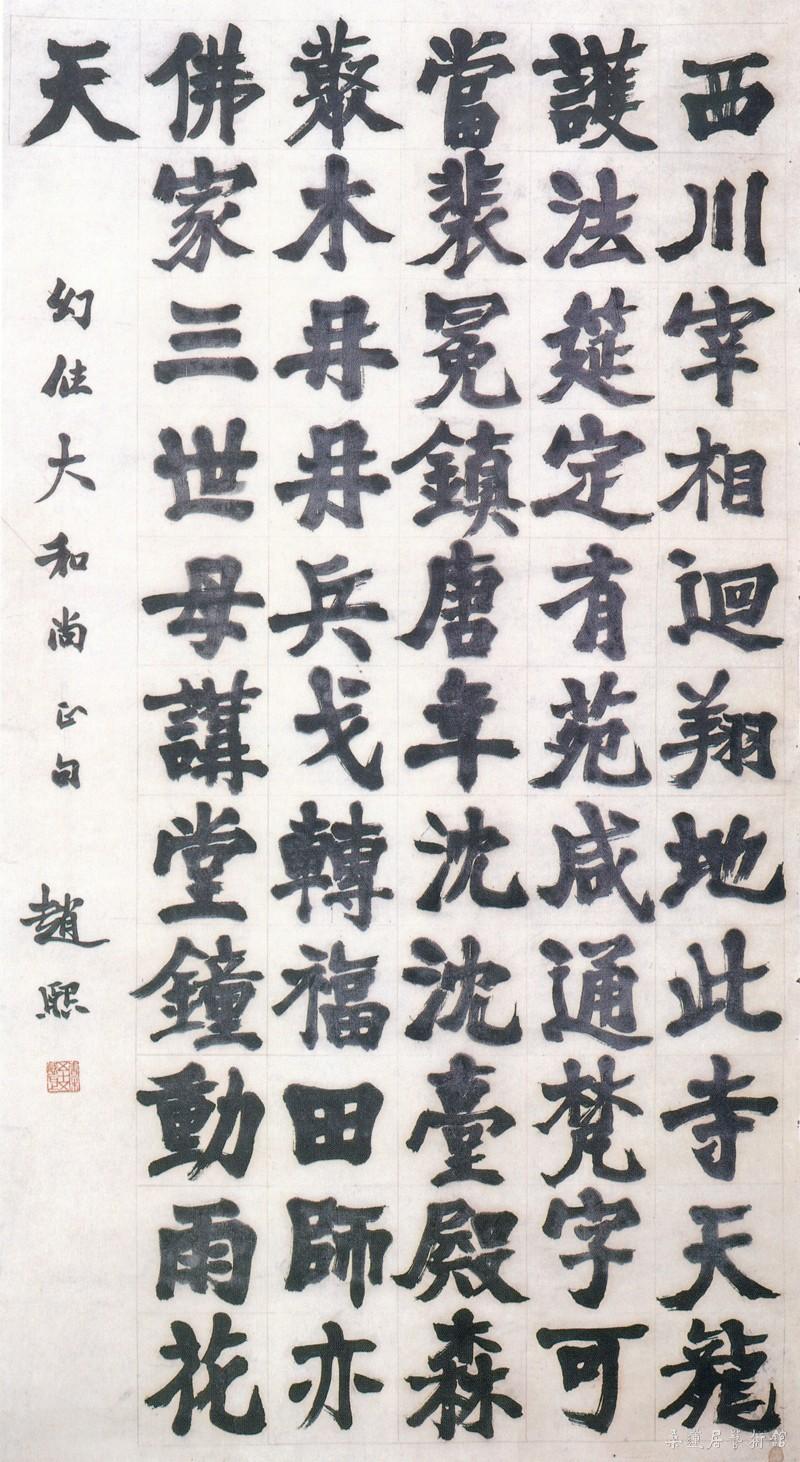 西川宰相迴翔地此寺天龍
護法筵定有苑咸通梵字可
當裴冕鎮唐年沈沈臺殿森
藂木冉冉兵戈轉福田師亦
佛家三世母講堂鐘動雨花
天
幻住大和尚正句 趙熙
桑蓮居藝術館